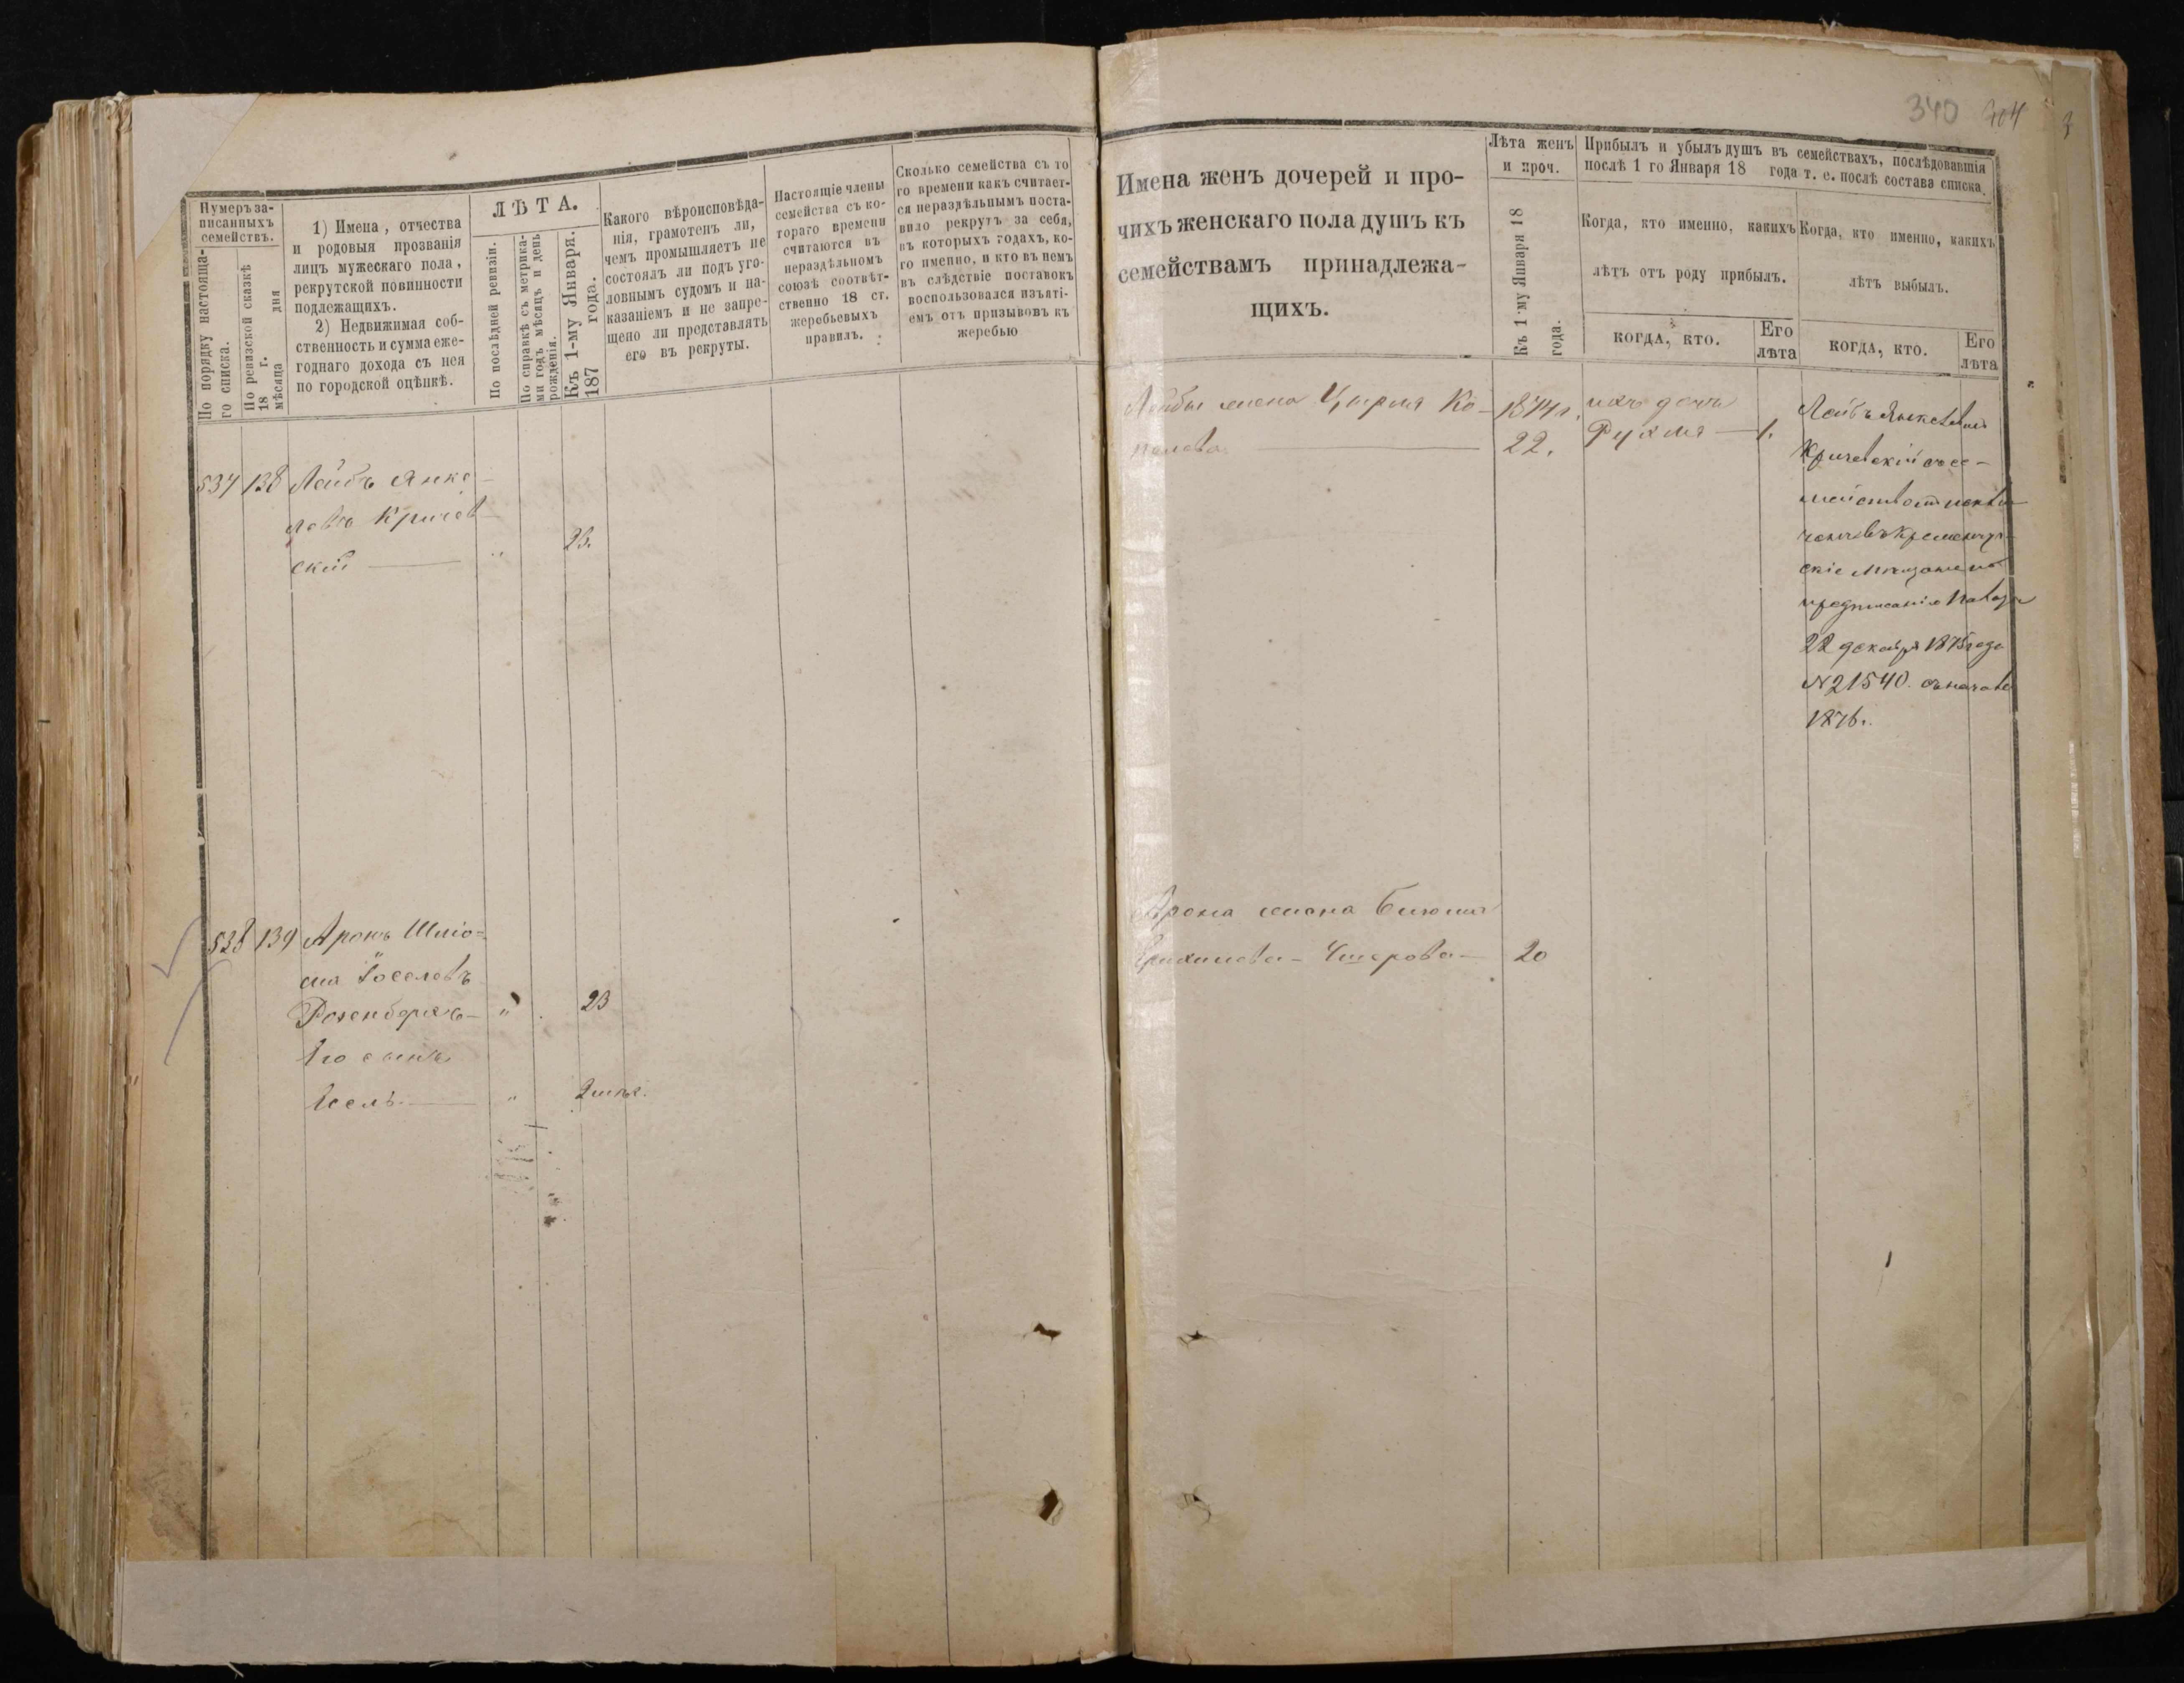 340 404
Нумеръ за-
писанныхъ
семействъ.
По порядку настояща-
го списка.
По ревизской сказкѣ
18 г.
мѣсяца дня
1) Имена, отчества
и родовыя прозванія
лицъ мужескаго пола,
рекрутской повинности
подлежащихъ.
2) Недвижимая соб-
ственность и сумма еже-
годнаго дохода съ нея
по городской оцѣнкѣ.
ЛѢТА.
По послѣдней ревизіи.
По справкѣ съ метрика-
ми годъ мѣсяцъ и день
рожденія.
Къ 1-му Января.
187 года.
Какого вѣроисповѣда-
нія, грамотенъ ли,
чемъ промышляетъ не
состоялъ ли подъ уго-
ловнымъ судомъ и на-
казаніемъ и не запре-
щено ли представлять
его въ рекруты.
Настоящіе члены
семейства съ ко-
тораго времени
считаются въ
нераздѣльномъ
союзѣ соотвѣт-
ственно 18 ст.
жеребьевыхъ
правилъ.
Сколько семейства съ то
го времени какъ считает-
ся нераздѣльнымъ поста-
вило рекрутъ за себя,
въ которыхъ годахъ, ко-
го именно, и кто въ немъ
въ слѣдствіе поставокъ
воспользовался изъяті-
емъ отъ призывовъ къ
жеребью
Имена женъ дочерей и про-
чихъ женскаго пола душъ къ
семействамъ принадлежа-
щихъ.
Лѣта женъ
и проч.
Къ 1-му Января 18
года.
Прибылъ и убылъ душъ въ семействахъ, послѣдовавшія
послѣ 1 го Января 18 года т. е. послѣ состава списка.
Когда, кто именно, какихъ
лѣтъ отъ роду прибылъ.
КОГДА, КТО.
Его
лѣта
Когда, кто именно, какихъ
лѣтъ выбылъ.
КОГДА, КТО.
Его
лѣта
534 138 Лейбъ Янке-
левъ Кричев-
скій — " 23.
Лейбы жена Ципра Ко-
пелева — 22.
1874 г. ихъ дочь
Рухля — 1.
Лейбъ Янкелевъ
Кричевскій съ се-
мействомъ
въ Кременчуг-
скіе Мѣщане по
предписанію
22 декабря 1875 года
№ 21540. съ начала
1876.
538 139 Аронъ Шліо-
ма Іоселевъ
Розенберхъ — " 23
Его сынъ
Іосель — "
Арона жена
20